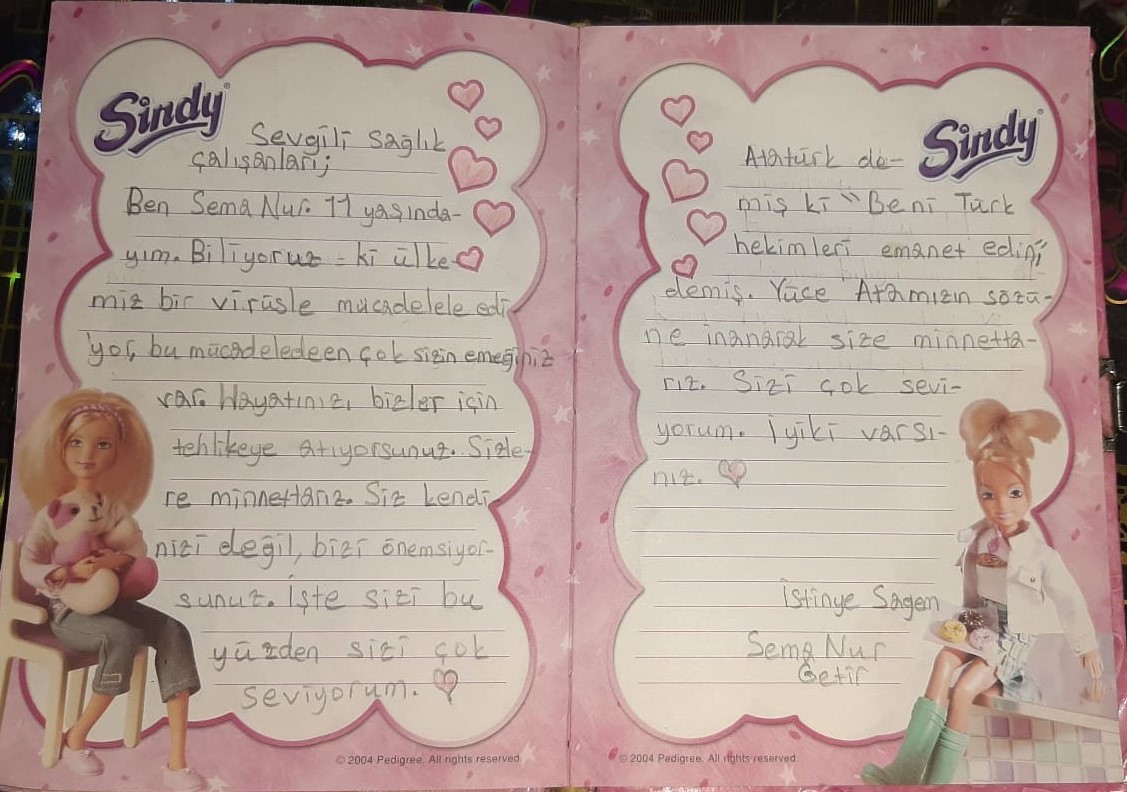 Sindy
Sevgili Sağlık
çalışanları;
Ben Sema Nur. 11 yaşında-
yım. Biliyoruz - ki ülke
miz bir virüsle mücadelele edi
yor, bu mücadeledeen çok sizin emeğiniz
var. Hayatınızı bizler için
tehlikeye atıyorsunuz. Sizle-
re minnettarız. Siz kendi
nizi değil, bizi önemsiyor-
sunuz. İşte sizi bu
yüzden sizi çok
seviyorum.
© 2004 Pedigree. All rights reserved.
Sindy
Atatürk de-
miş ki "Beni Türk
hekimleri emanet edin"
demiş. Yüce Atamızın sözü-
ne inanarak size minnetta-
rız. Sizi çok sevi-
yorum. İyiki varsı-
nız.
İstinye Sagem
Sema Nur
Getir
© 2004 Pedigree. All rights reserved.